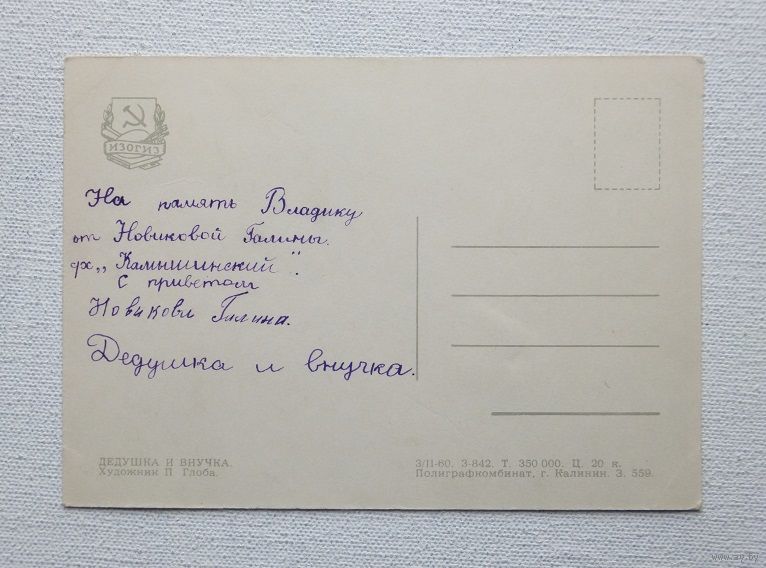 ИЗОГИЗ
На память Владику
от Новиковой Галины.
ф-х „Камышинский".
С приветом
Новикова Галина.
Дедушка и внучка.
ДЕДУШКА И ВНУЧКА.
Художник П Глоба.
3/II-60. З-842. Т. 350 000. Ц. 20 к.
Полиграфкомбинат, г. Калинин. З. 559.
www.ay.by